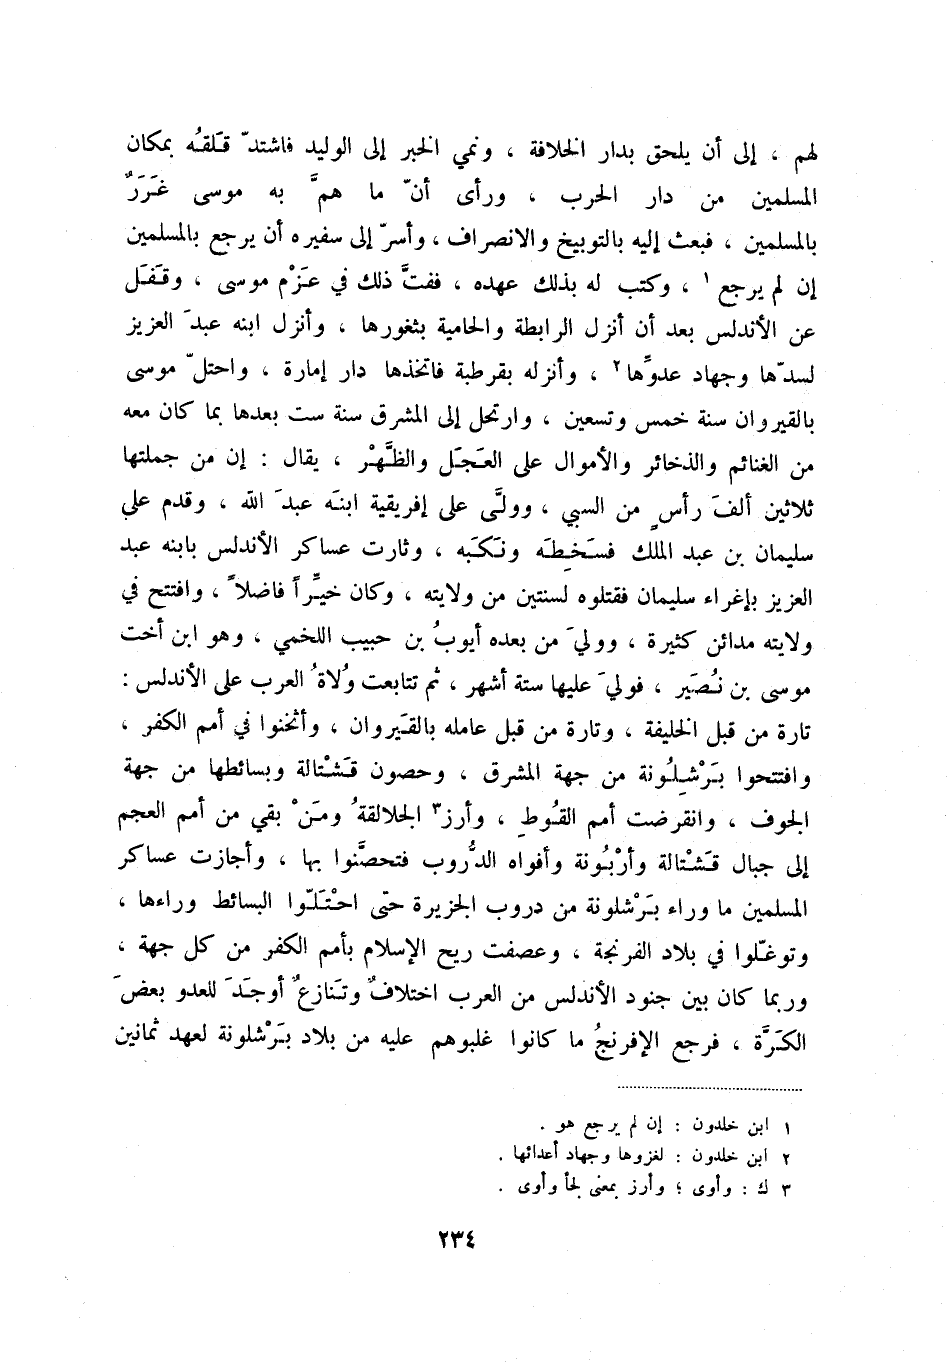 لهم ، إلى أن يلحق بدار الخلافة ، ونمي الخبر إلى الوليد فاشتدّ قَلَقُه بمكان
المسلمين من دار الحرب ، ورأى أنّ ما همَّ به موسى غَرَرٌ
بالمسلمين ، فبعث إليه بالتوبيخ والانصراف ، وأسرّ إلى سفيره أن يرجع بالمسلمين
إن لم يرجع ١ ، وكتب له بذلك عهده ، ففتَّ ذلك في عَزْم موسى ، وقَفَل
عن الأندلس بعد أن أنزل الرابطة والحامية بثغورها ، وأنزل ابنه عبدَ العزيز
لسدّها وجهاد عدوِّها ٢ ، وأنزله بقرطبة فاتخذها دار إمارة ، واحتلّ موسى
بالقيروان سنة خمس وتسعين ، وارتحل إلى المشرق سنة ست بعدها بما كان معه
من الغنائم والذخائر والأموال على العَجَل والظَّهْر ، يقال : إن من جملتها
ثلاثين ألفَ رأسٍ من السبي ، وولَّى على إفريقية ابنَه عبدَ الله ، وقدم على
سليمان بن عبد الملك فسَخِطَه ونَكَبَه ، وثارت عساكر الأندلس بابنه عبد
العزيز بإغراء سليمان فقتلوه لسنتين من ولايته ، وكان خيِّراً فاضلاً ، وافتتح في
ولايته مدائن كثيرة ، ووليَ من بعده أيوبُ بن حبيب اللخمي ، وهو ابن أخت
موسى بن نُصَير ، فوليَ عليها ستة أشهر ، ثم تتابعت وُلاةُ العرب على الأندلس :
تارة من قبل الخليفة ، وتارة من قبل عامله بالقَيروان ، وأثخنوا في أمم الكفر ،
وافتتحوا بَرْشِلُونة من جهة المشرق ، وحصون قَشْتالة وبسائطها من جهة
الجوف ، وانقرضت أمم القُوطِ ، وأرز٣ الجلالقةُ ومَنْ بقي من أمم العجم
إلى جبال قَشْتالة وأرْبُونة وأفواه الدُّروب فتحصَّنوا بها ، وأجازت عساكر
المسلمين ما وراء بَرْشلونة من دروب الجزيرة حتّى احْتَلّوا البسائط وراءها ،
وتوغّلوا في بلاد الفرنجة ، وعصفت ريح الإسلام بأمم الكفر من كل جهة ،
وربما كان بين جنود الأندلس من العرب اختلافٌ وتَنازعٌ أوجَدَ للعدو بعضَ
الكَرَّة ، فرجع الإفرنجُ ما كانوا غلبوهم عليه من بلاد بَرْشلونة لعهد ثمانين
١ ابن خلدون : إن لم يرجع هو .
٢ ابن خلدون : لغزوها وجهاد أعدائها .
٣ ك : وأوى ؛ وأرز بمعنى لجأ وأوى .
٢٣٤